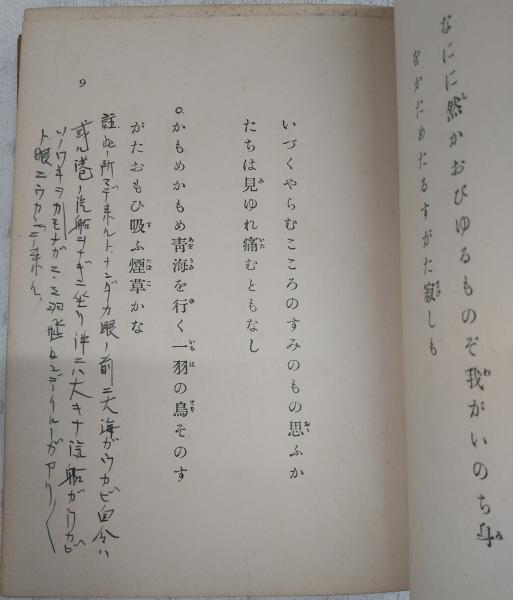 なにに然かおびゆるものぞ我がいのち身
をかためたるすがた寂しも
いづくやらむこころのすみのもの思ふか
たちは見ゆれ痛むともなし
○かもめかもめ靑海を行く一羽の鳥そのす
がたおもひ吸ふ煙草かな
註、此ノ所マデ来ルト、ナンダカ眼ノ前ニ大海ガウカビ自分ハ
或ル港ノ汽船 ニ坐リ沖ニハ大キナ汽船ガウカビ
ソノワキヲカモメガ二、三羽飛ンデイルノガアリ〳〵
ト眼ニウカンデ来ル。
9